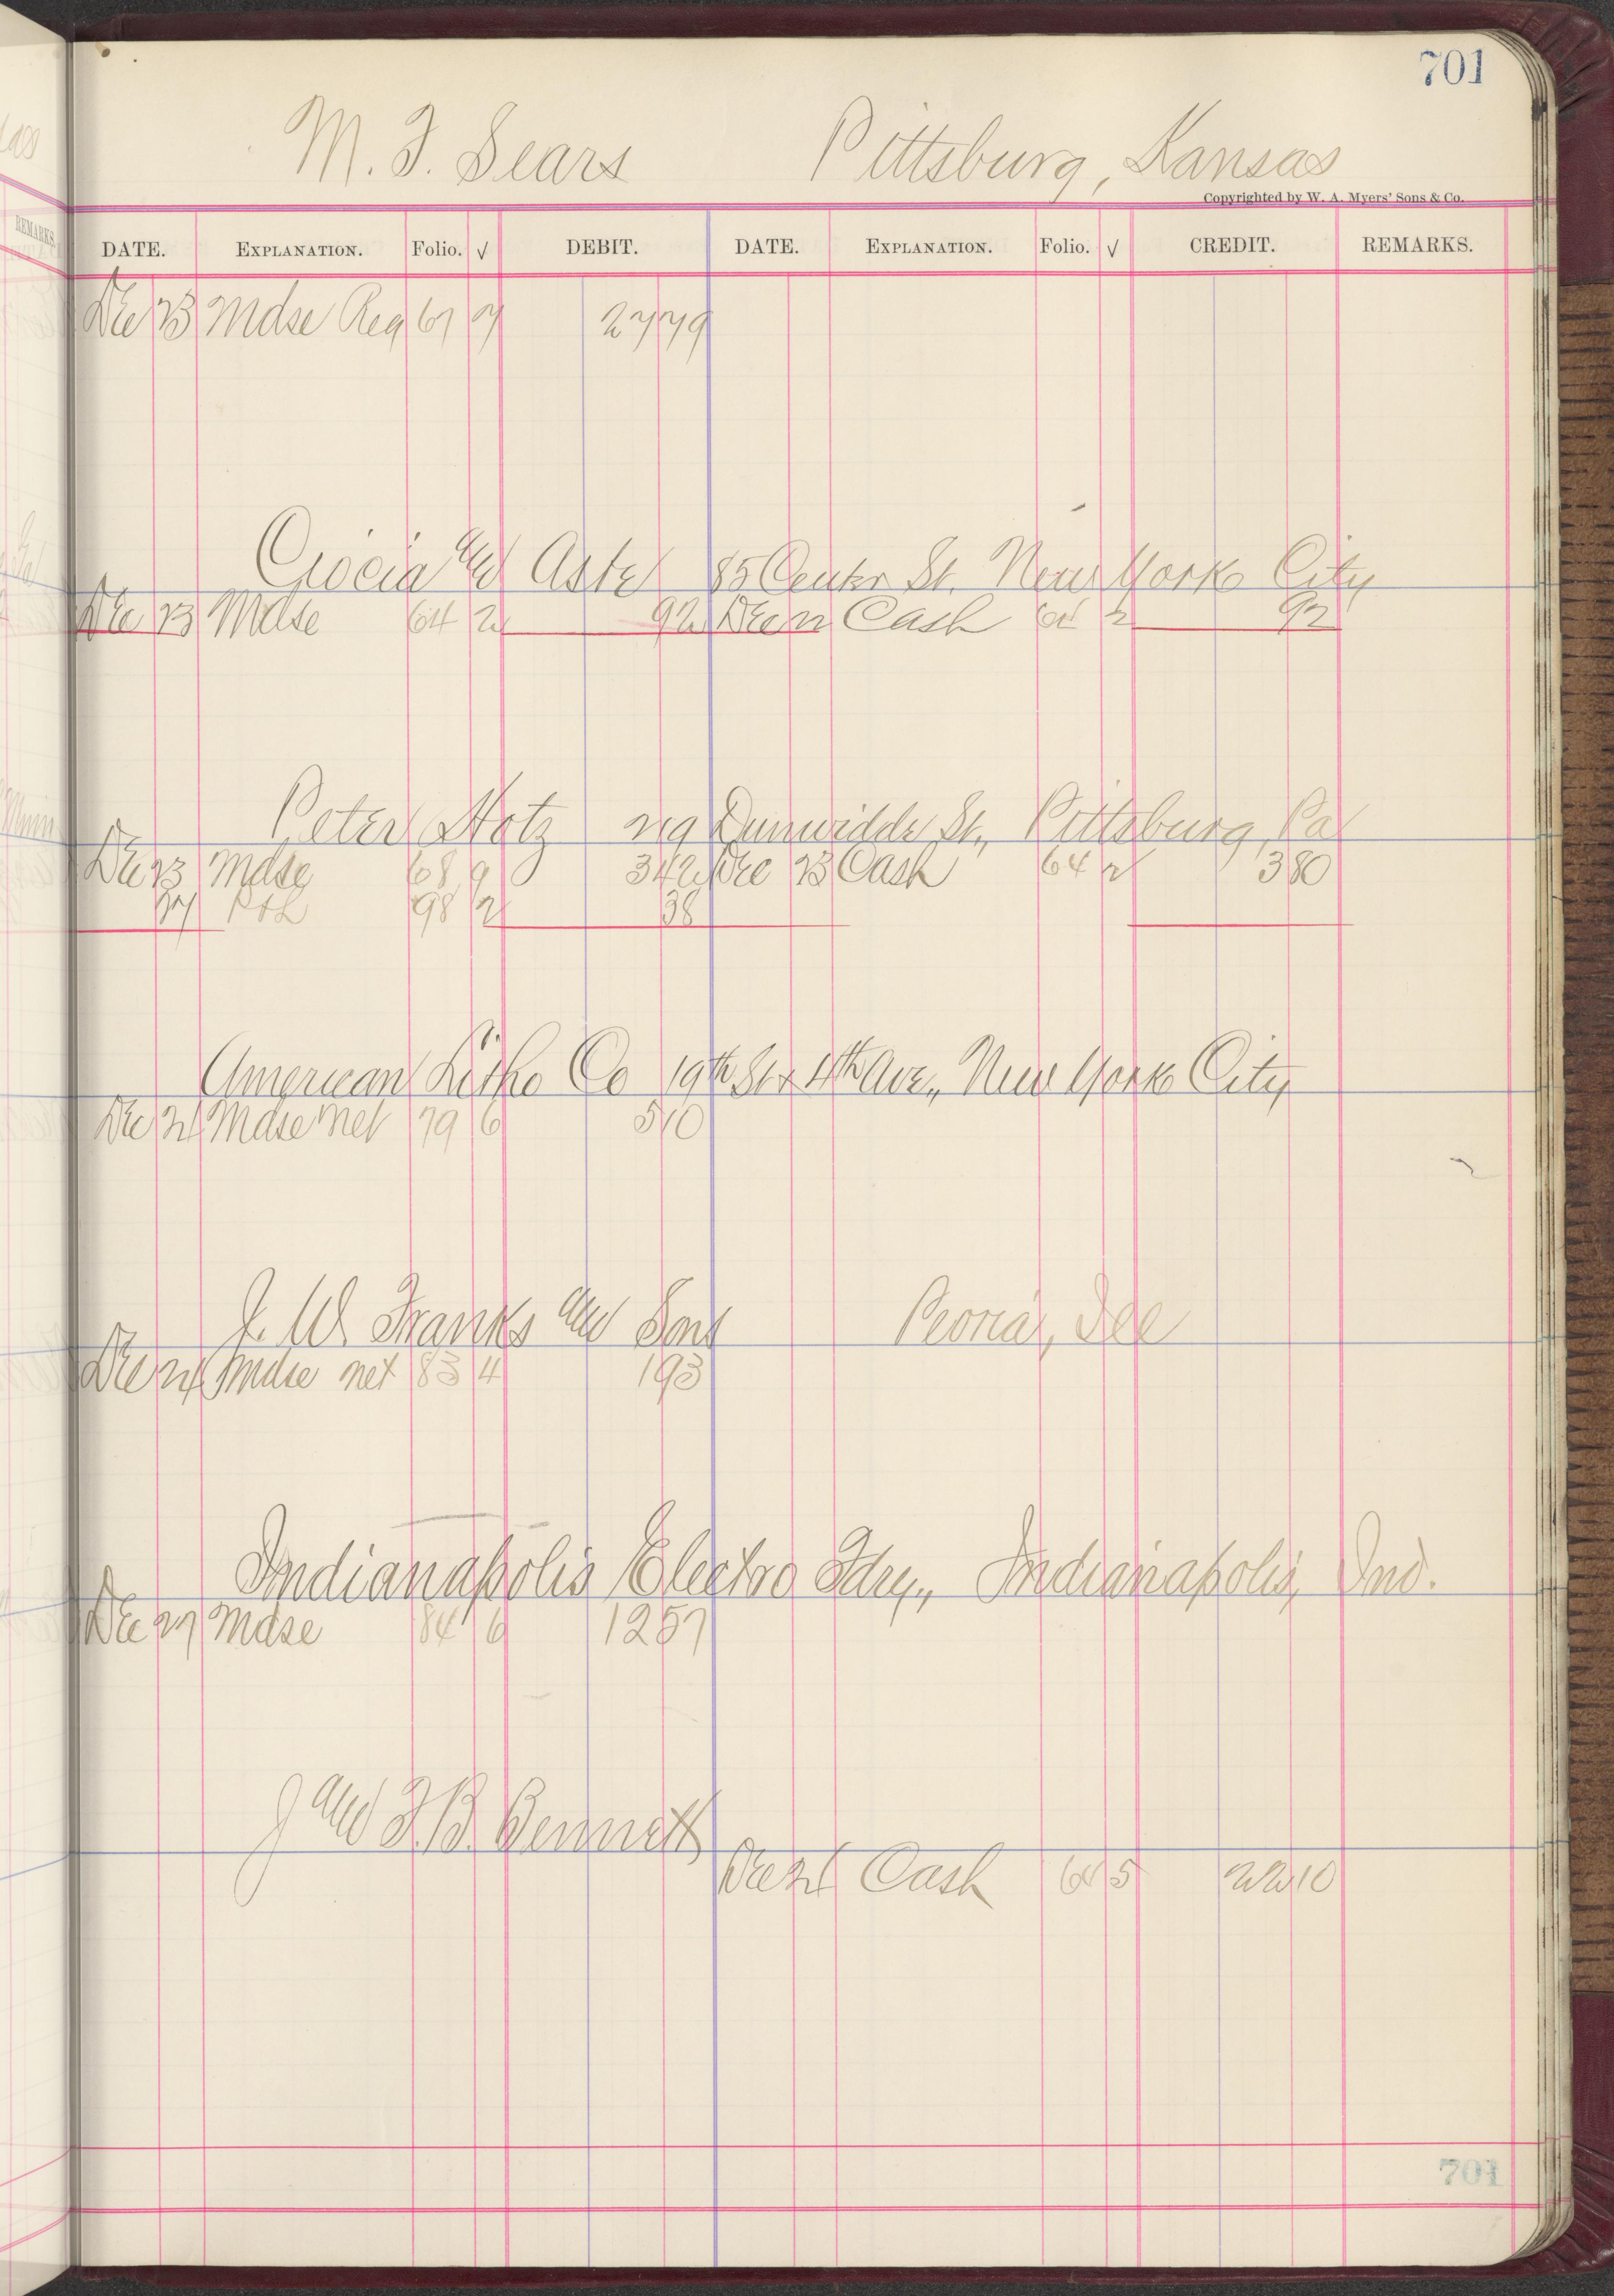 701
M. F. Sears Pittsburg, Kansas
Copyrighted by W. A. Myers' Sons & Co.
DATE. EXPLANATION. Folio. √ DEBIT. DATE. EXPLANATION. Folio. √ CREDIT. REMARKS.
Dec 23 Mdse Reg 67 7 27 79
and Aste 85 Center St. New York City
Dec 23 Mdse 64 2 92 Dec 22 Cash 2 92
Peter Hotz 219 Dunwidde St., Pittsburg, Pa
Dec 23 Mdse 68 9 3 42 Dec 23 Cash 64 2 3 80
27 98 2 38
American Litho Co 19th St & 4th Ave., New York City
Dec 24 Mdse net 79 6 5 10
J. W. Franks and Sons Peoria, Ill
Dec 24 Mdse net 83 4 1 93
Indianapolis Electro Fdry., Indianapolis, Ind.
Dec 27 Mdse 84 6 12 57
J and F. B. Bennett
Dec 24 Cash 5 22 10
701